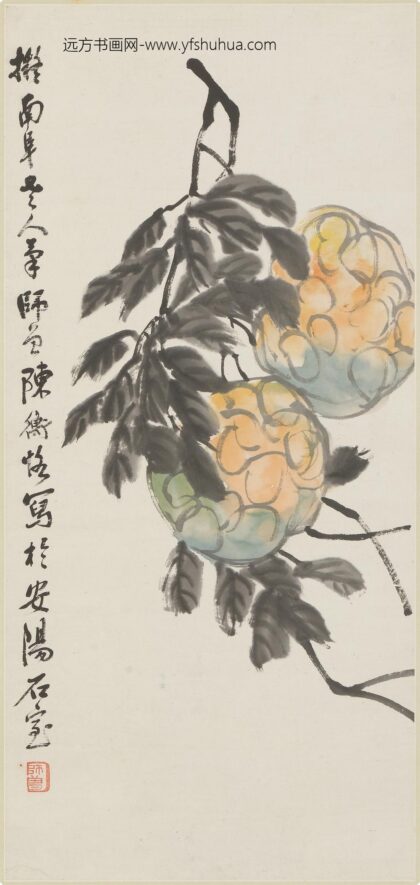 远方书画网-www.yfshuhua.com
拟南阜老人笔师曾陳衡恪寫於安陽石室
師曾